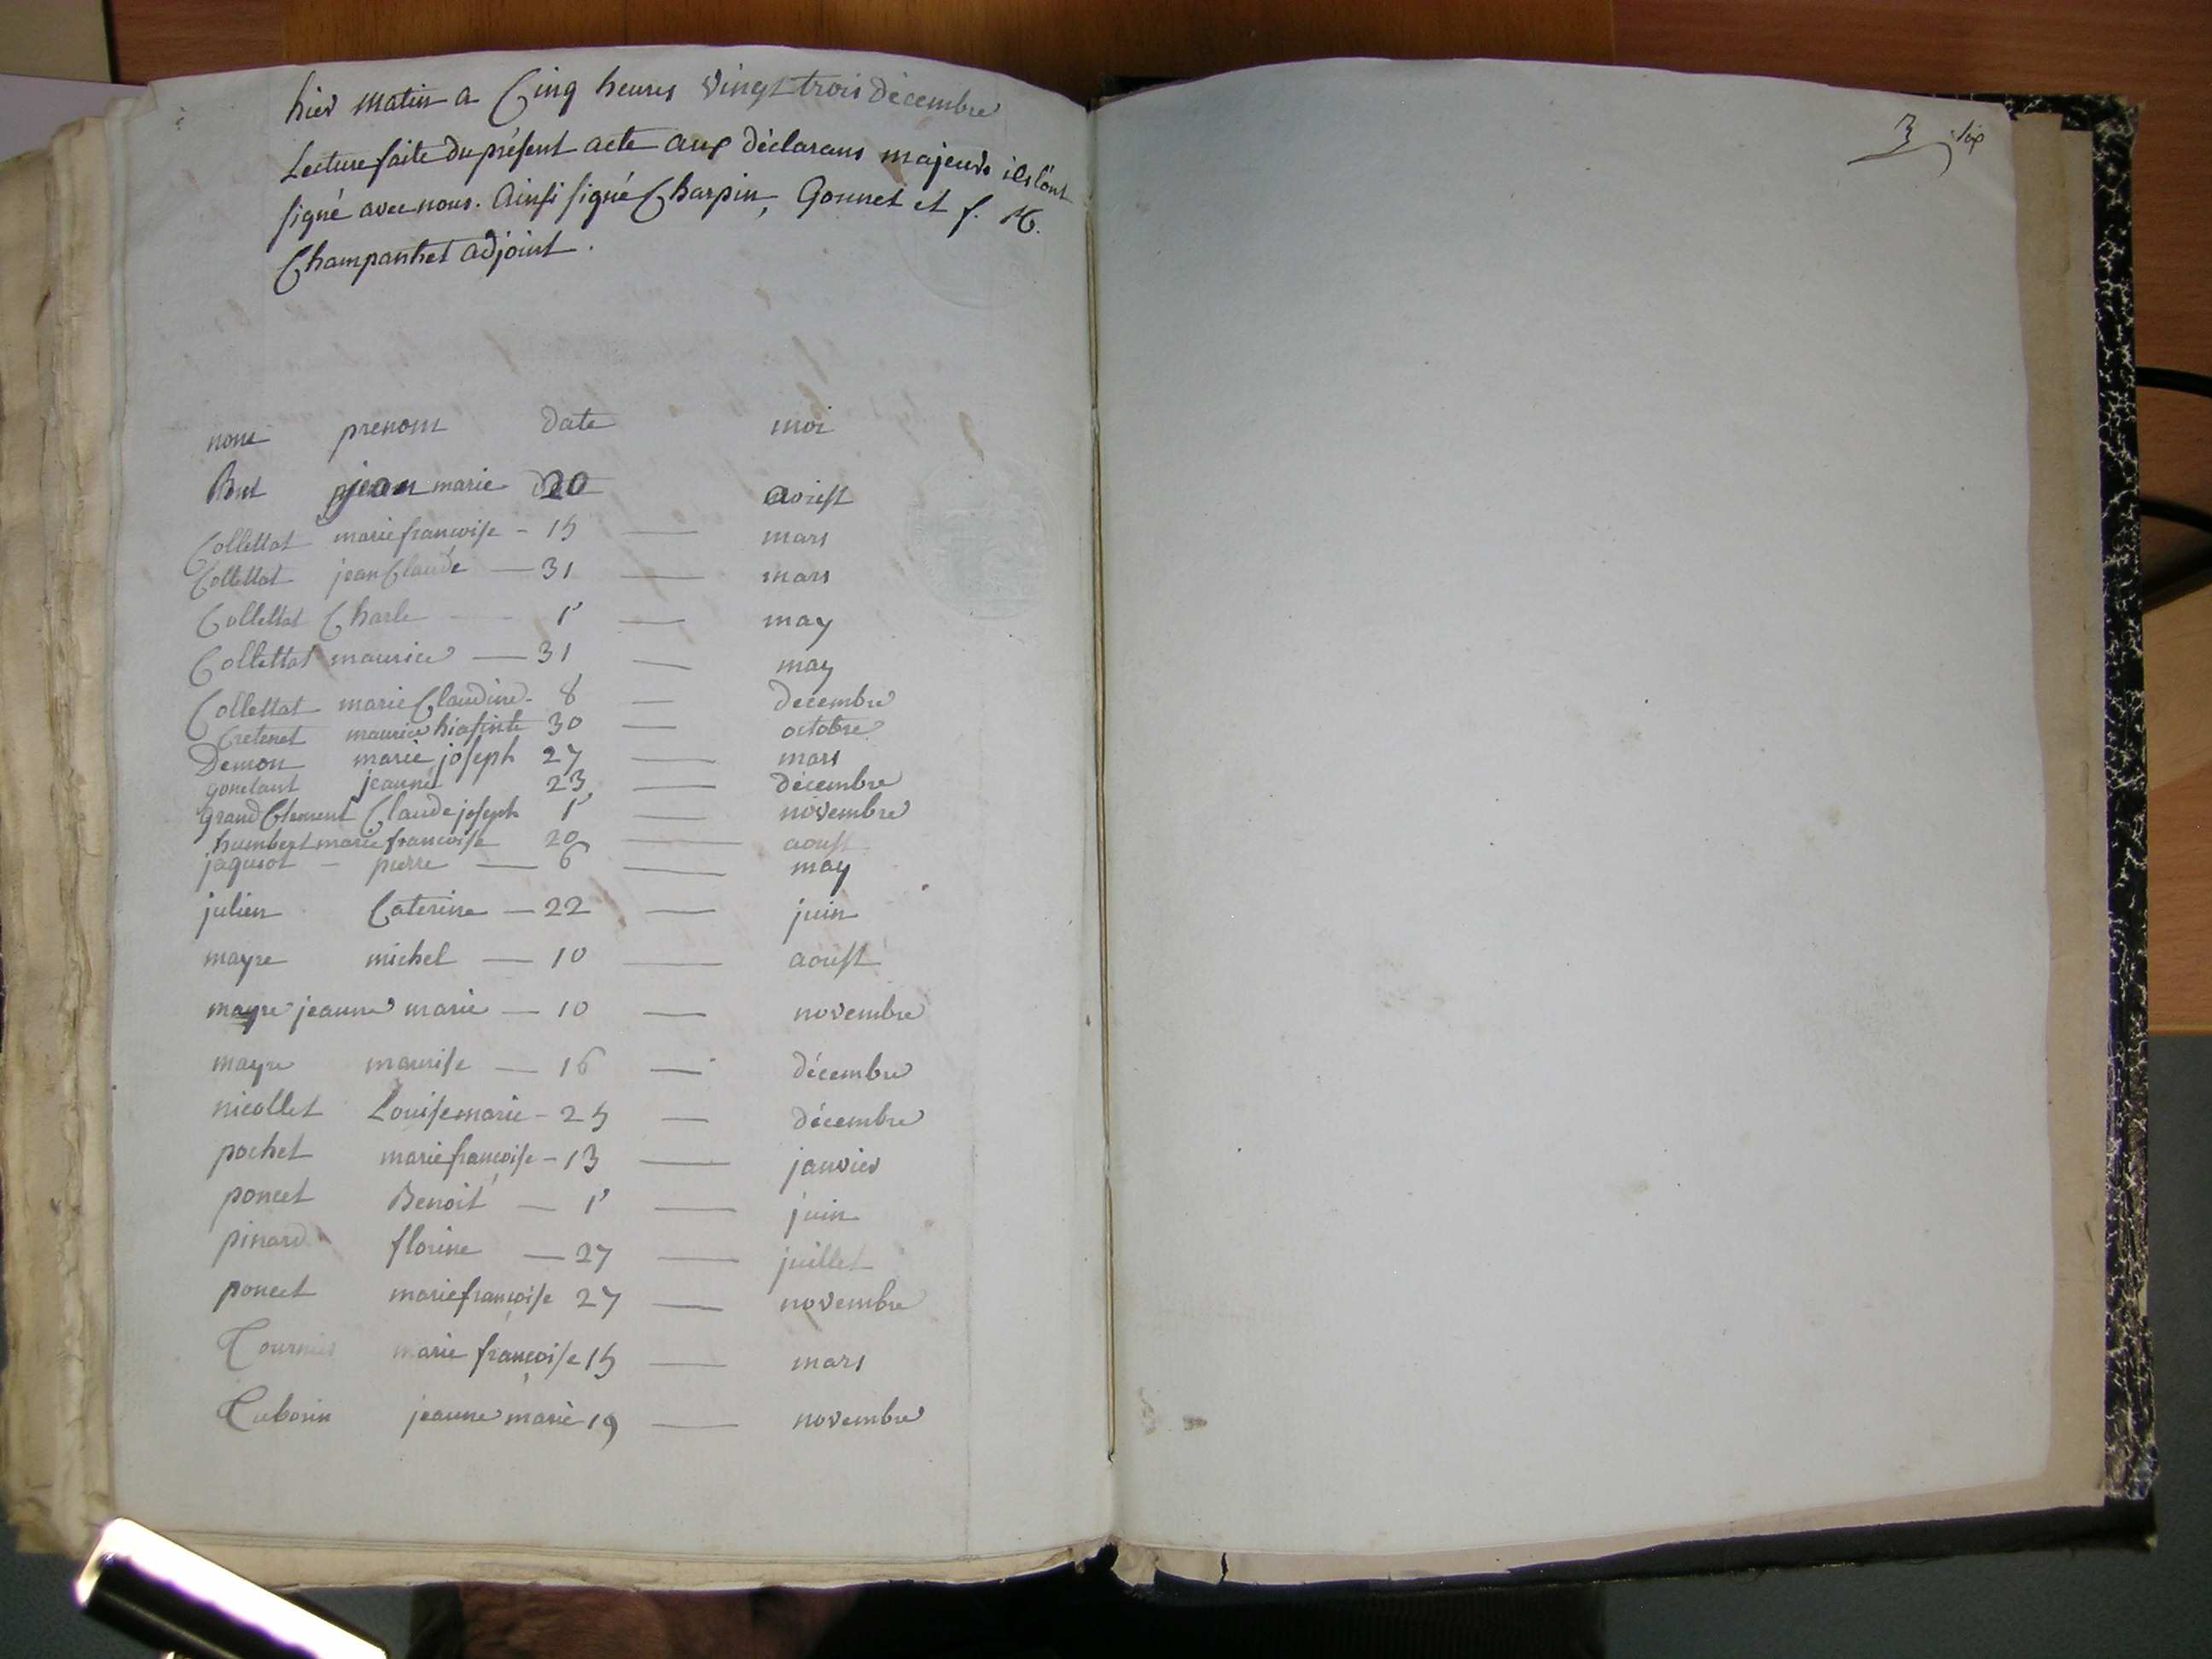 hier matin a Cinq heures vingt trois décembre
Lecture faite du présent acte aux déclarans majeurs ils l'ont
signé avec nous. Ainsi signé Charpin, Gonnet et f. M.
Champanhet adjoint.
3 six
nom prenom date moi
But jean marie 20 aoust
Collettat marie francoise - 15 — mars
Collettat jean Claude — 31 — mars
Collettat Charle — 1r — may
Collettat maurice — 31 — may
Collettat marie Claudine - 8 — decembre
Cretenet maurice hiasinte 30 — octobre
Demon marie joseph 27 — mars
jeanne 23 — décembre
grand Clement Claude joseph 1r — novembre
humbert marie francoise 20 — aoust
jaquiot - pierre — 6 — may
julien Caterine — 22 — juin
mayre michel — 10 — aoust
mayre jeanne marie — 10 — novembre
mayre maurise — 16 — décembre
nicollet Louise marie - 25 — décembre
pochet marie francoise - 13 — janvier
poncet Benoit — 1r — juin
pinard florine — 27 — juillet
poncet marie françoise 27 — novembre
Tournier marie françoise 15 — mars
Tuborin jeanne marie 19 — novembre